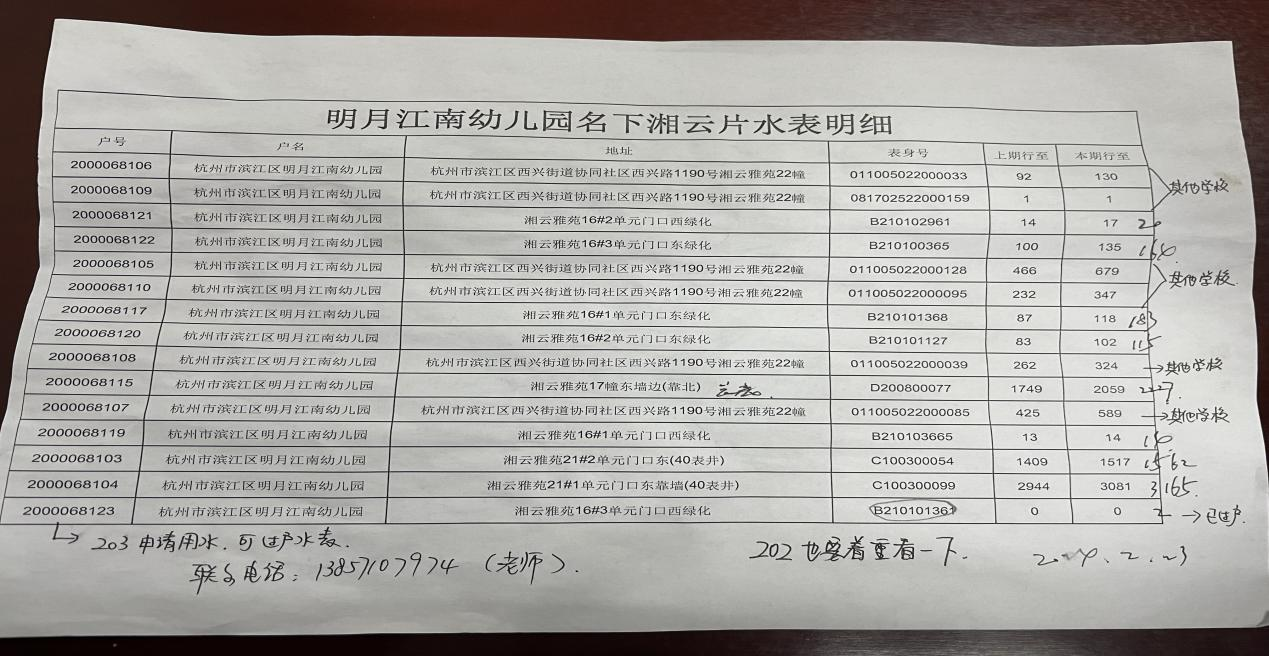 明月江南幼儿园名下湘云片水表明细
户号 户名 地址 表身号 上期行至 本期行至
2000068106 杭州市滨江区明月江南幼儿园 杭州市滨江区西兴街道协同社区西兴路1190号湘云雅苑22幢 011005022000033 92 130
其他学校
2000068109 杭州市滨江区明月江南幼儿园 杭州市滨江区西兴街道协同社区西兴路1190号湘云雅苑22幢 081702522000159 1 1
2000068121 杭州市滨江区明月江南幼儿园 湘云雅苑16#2单元门口西绿化 B210102961 14 17 20
2000068122 杭州市滨江区明月江南幼儿园 湘云雅苑16#3单元门口东绿化 B210100365 100 135
2000068105 杭州市滨江区明月江南幼儿园 杭州市滨江区西兴街道协同社区西兴路1190号湘云雅苑22幢 011005022000128 466 679
其他学校
2000068110 杭州市滨江区明月江南幼儿园 杭州市滨江区西兴街道协同社区西兴路1190号湘云雅苑22幢 011005022000095 232 347
2000068117 杭州市滨江区明月江南幼儿园 湘云雅苑16#1单元门口东绿化 B210101368 87 118 183
2000068120 杭州市滨江区明月江南幼儿园 湘云雅苑16#2单元门口东绿化 B210101127 83 102 115
2000068108 杭州市滨江区明月江南幼儿园 杭州市滨江区西兴街道协同社区西兴路1190号湘云雅苑22幢 011005022000039 262 324 →其他学校
2000068115 杭州市滨江区明月江南幼儿园 湘云雅苑17幢东墙边(靠北) D200800077 1749 2059
2000068107 杭州市滨江区明月江南幼儿园 杭州市滨江区西兴街道协同社区西兴路1190号湘云雅苑22幢 011005022000085 425 589 →其他学校
2000068119 杭州市滨江区明月江南幼儿园 湘云雅苑16#1单元门口西绿化 B210103665 13 14
2000068103 杭州市滨江区明月江南幼儿园 湘云雅苑21#2单元门口东(40表井) C100300054 1409 1517 1562
2000068104 杭州市滨江区明月江南幼儿园 湘云雅苑21#1单元门口东靠墙(40表井) C100300099 2944 3081 3165
2000068123 杭州市滨江区明月江南幼儿园 湘云雅苑16#3单元门口西绿化 B210101361 0 0 →已过户
203申请用水,可过户水表.
202也要着重看一下. 2024.2.23
联系电话:13857107974(老师).